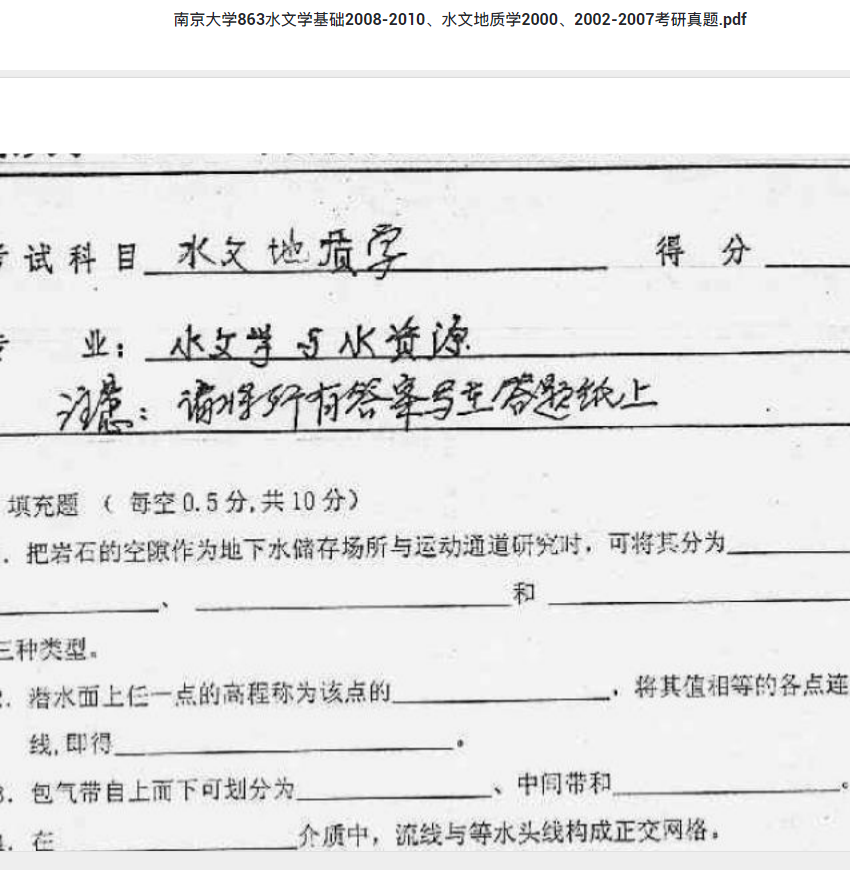 南京大学863水文学基础2008-2010、水文地质学2000、2002-2007考研真题.pdf
试科目 水文地质学 得分
业： 水文学与水资源
注意：请将所有答案写在答题纸上
填充题 （ 每空0.5分,共10分）
. 把岩石的空隙作为地下水储存场所与运动通道研究时，可将其分为
、 和
三种类型。
2. 潜水面上任一点的高程称为该点的 ，将其值相等的各点连
线,即得 。
3. 包气带自上而下可划分为 、中间带和 。
4. 在 介质中，流线与等水头线构成正交网格。